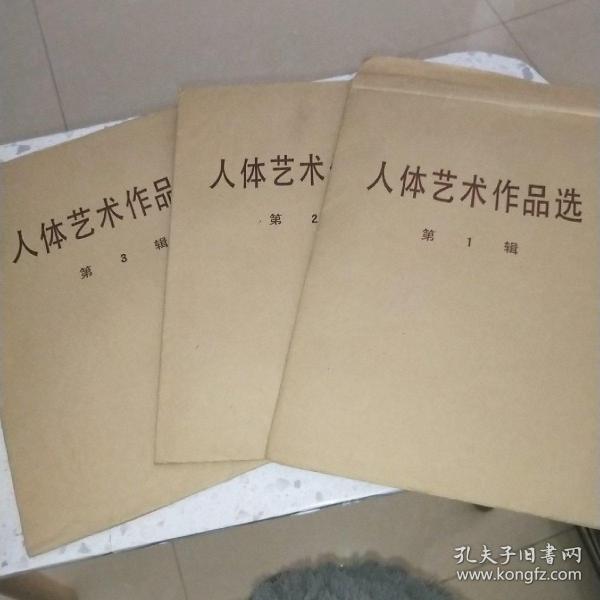 人体艺术作品
第 3 辑
人体艺术
第 2
人体艺术作品选
第 1 辑
孔夫子旧書网
www.kongfz.com